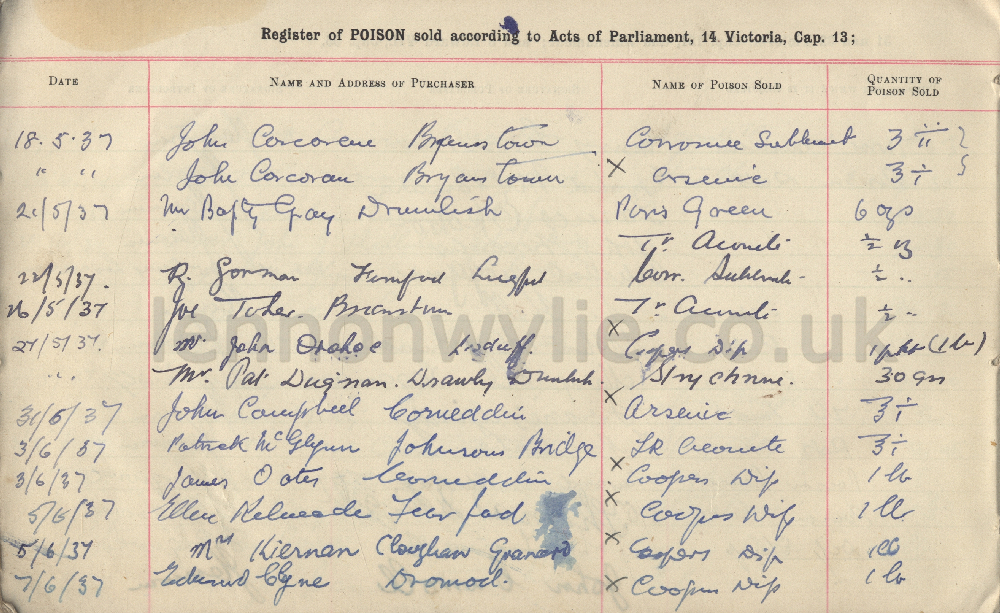 Register of POISON sold according to Acts of Parliament, 14 Victoria, Cap. 13;
DATE NAME AND ADDRESS OF PURCHASER NAME OF POISON SOLD QUANTITY OF POISON SOLD
18.5.37 John Corcoran Bryanstown Corrosive Sublimat ʒ ii
" " John Corcoran Bryanstown X Arsenic ʒ i
21/5/37 Mr Gray Drumlish Paris Green 6 ozs
Tr. Aconite ½ oz
22/5/37. R. Gorman Corr. Sublimate ½ "
26/5/37 Joe Toher. Tr Aconite ½ "
27/5/37. Mr. John Lisduff. X Coopers Dip 1 pkt (1 lb)
" " Mr. Pat Duignan. Drumlish. Strychnine. 30 grs
31/5/37 John Campbell Corneddin X Arsenic ʒ i
3/6/37 Patrick McGlynn Johnsons Bridge Aconite ʒ i
3/6/37 James Oates Corneddin X Coopers Dip 1 lb
5/6/37 Ellen X Coopers Dip 1 lb
5/6/37 Mrs Kiernan Cloghan Granard X Coopers Dip 1 lb
7/6/37 Edward Clyne Dromod. X Coopers Dip 1 lb
lennonwylie.co.uk